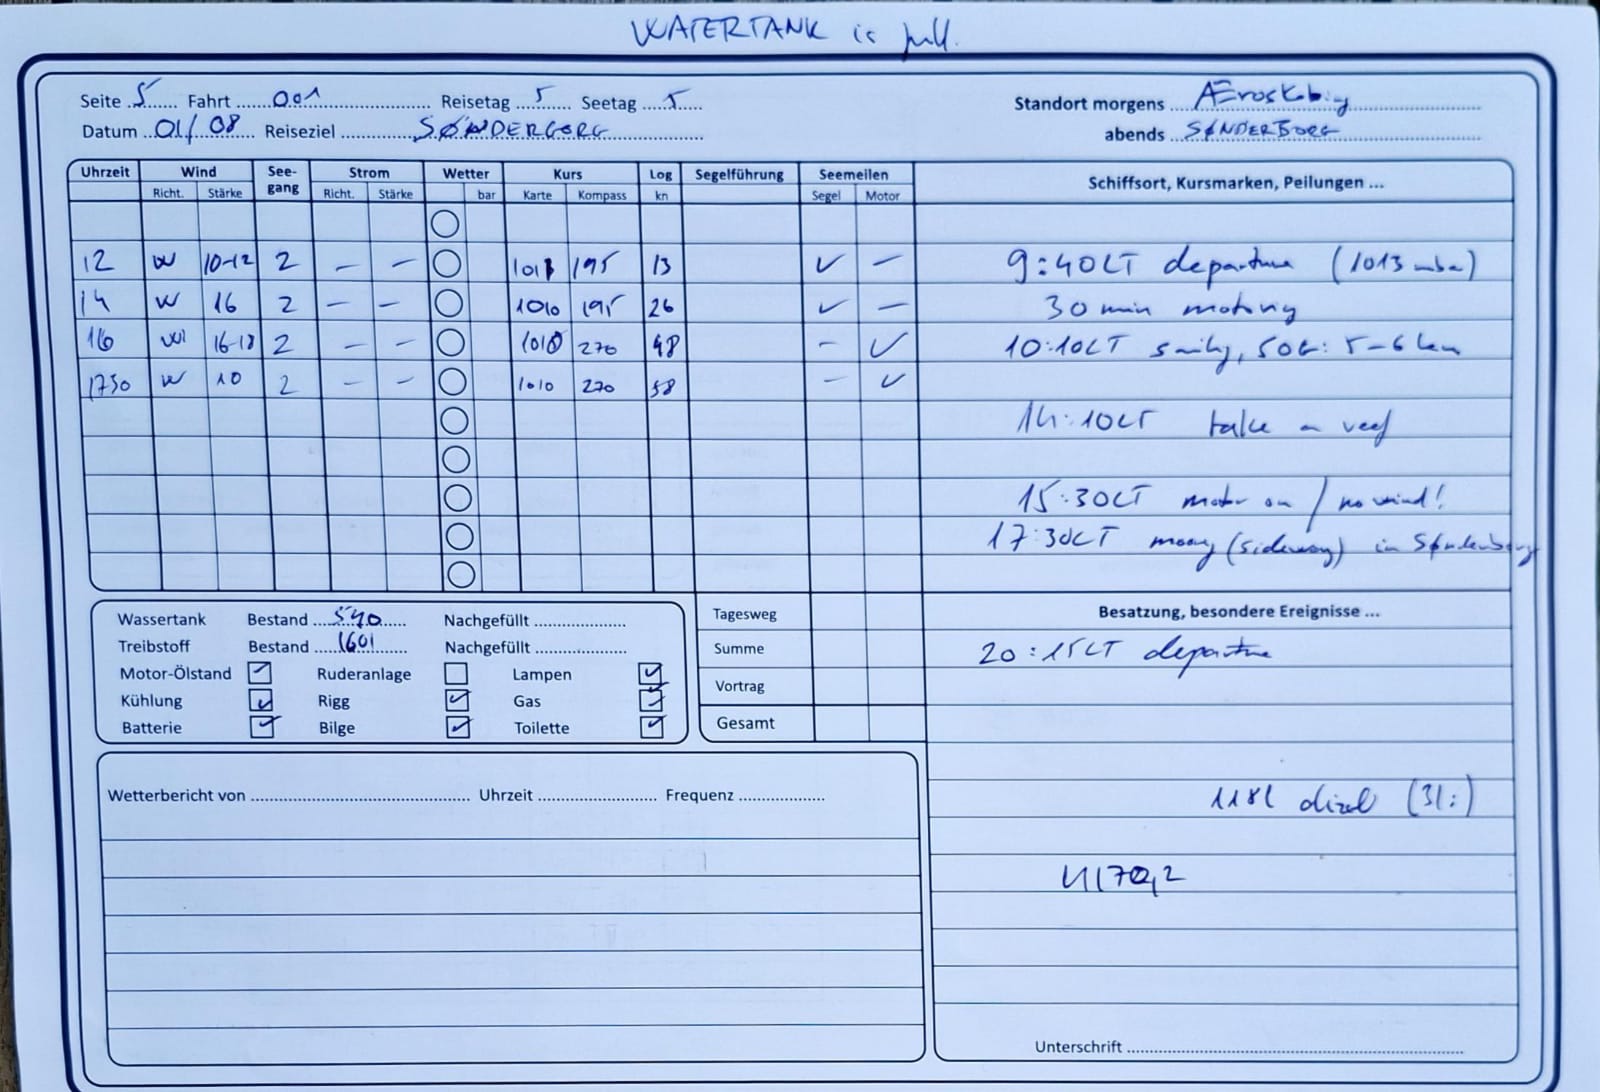 WATERTANK is full.
Seite 5 Fahrt 001 Reisetag 5 Seetag 5 Standort morgens Ærøskobing
Datum 01/08 Reiseziel SØNDERBORG abends SØNDERBORG
Uhrzeit Wind See-gang Strom Wetter Kurs Log Segelführung Seemeilen Schiffsort, Kursmarken, Peilungen ...
Richt. Stärke Richt. Stärke bar Karte Kompass kn Segel Motor
12 W 10-12 2 — — 1011 195 13 ✓ — 9:40LT departure (1013 mba)
14 W 16 2 — — 1010 195 26 ✓ — 30 min motoring
16 W 16-18 2 — — 1010 270 48 – ✓ 10:10LT sailing, SOG: 5-6 kn
1730 W 10 2 — — 1010 270 58 – ✓
14:10LT take a reef
15:30LT motor on / no wind!
17:30LT (sideway) in Sønderborg
Wassertank Bestand 540 Nachgefüllt Tagesweg Besatzung, besondere Ereignisse ...
Treibstoff Bestand 160l Nachgefüllt Summe 20:15LT departure
Motor-Ölstand ✓ Ruderanlage Lampen ✓ Vortrag
Kühlung ✓ Rigg ✓ Gas ✓
Batterie ✓ Bilge ✓ Toilette ✓ Gesamt
Wetterbericht von Uhrzeit Frequenz
118l dizel
Unterschrift